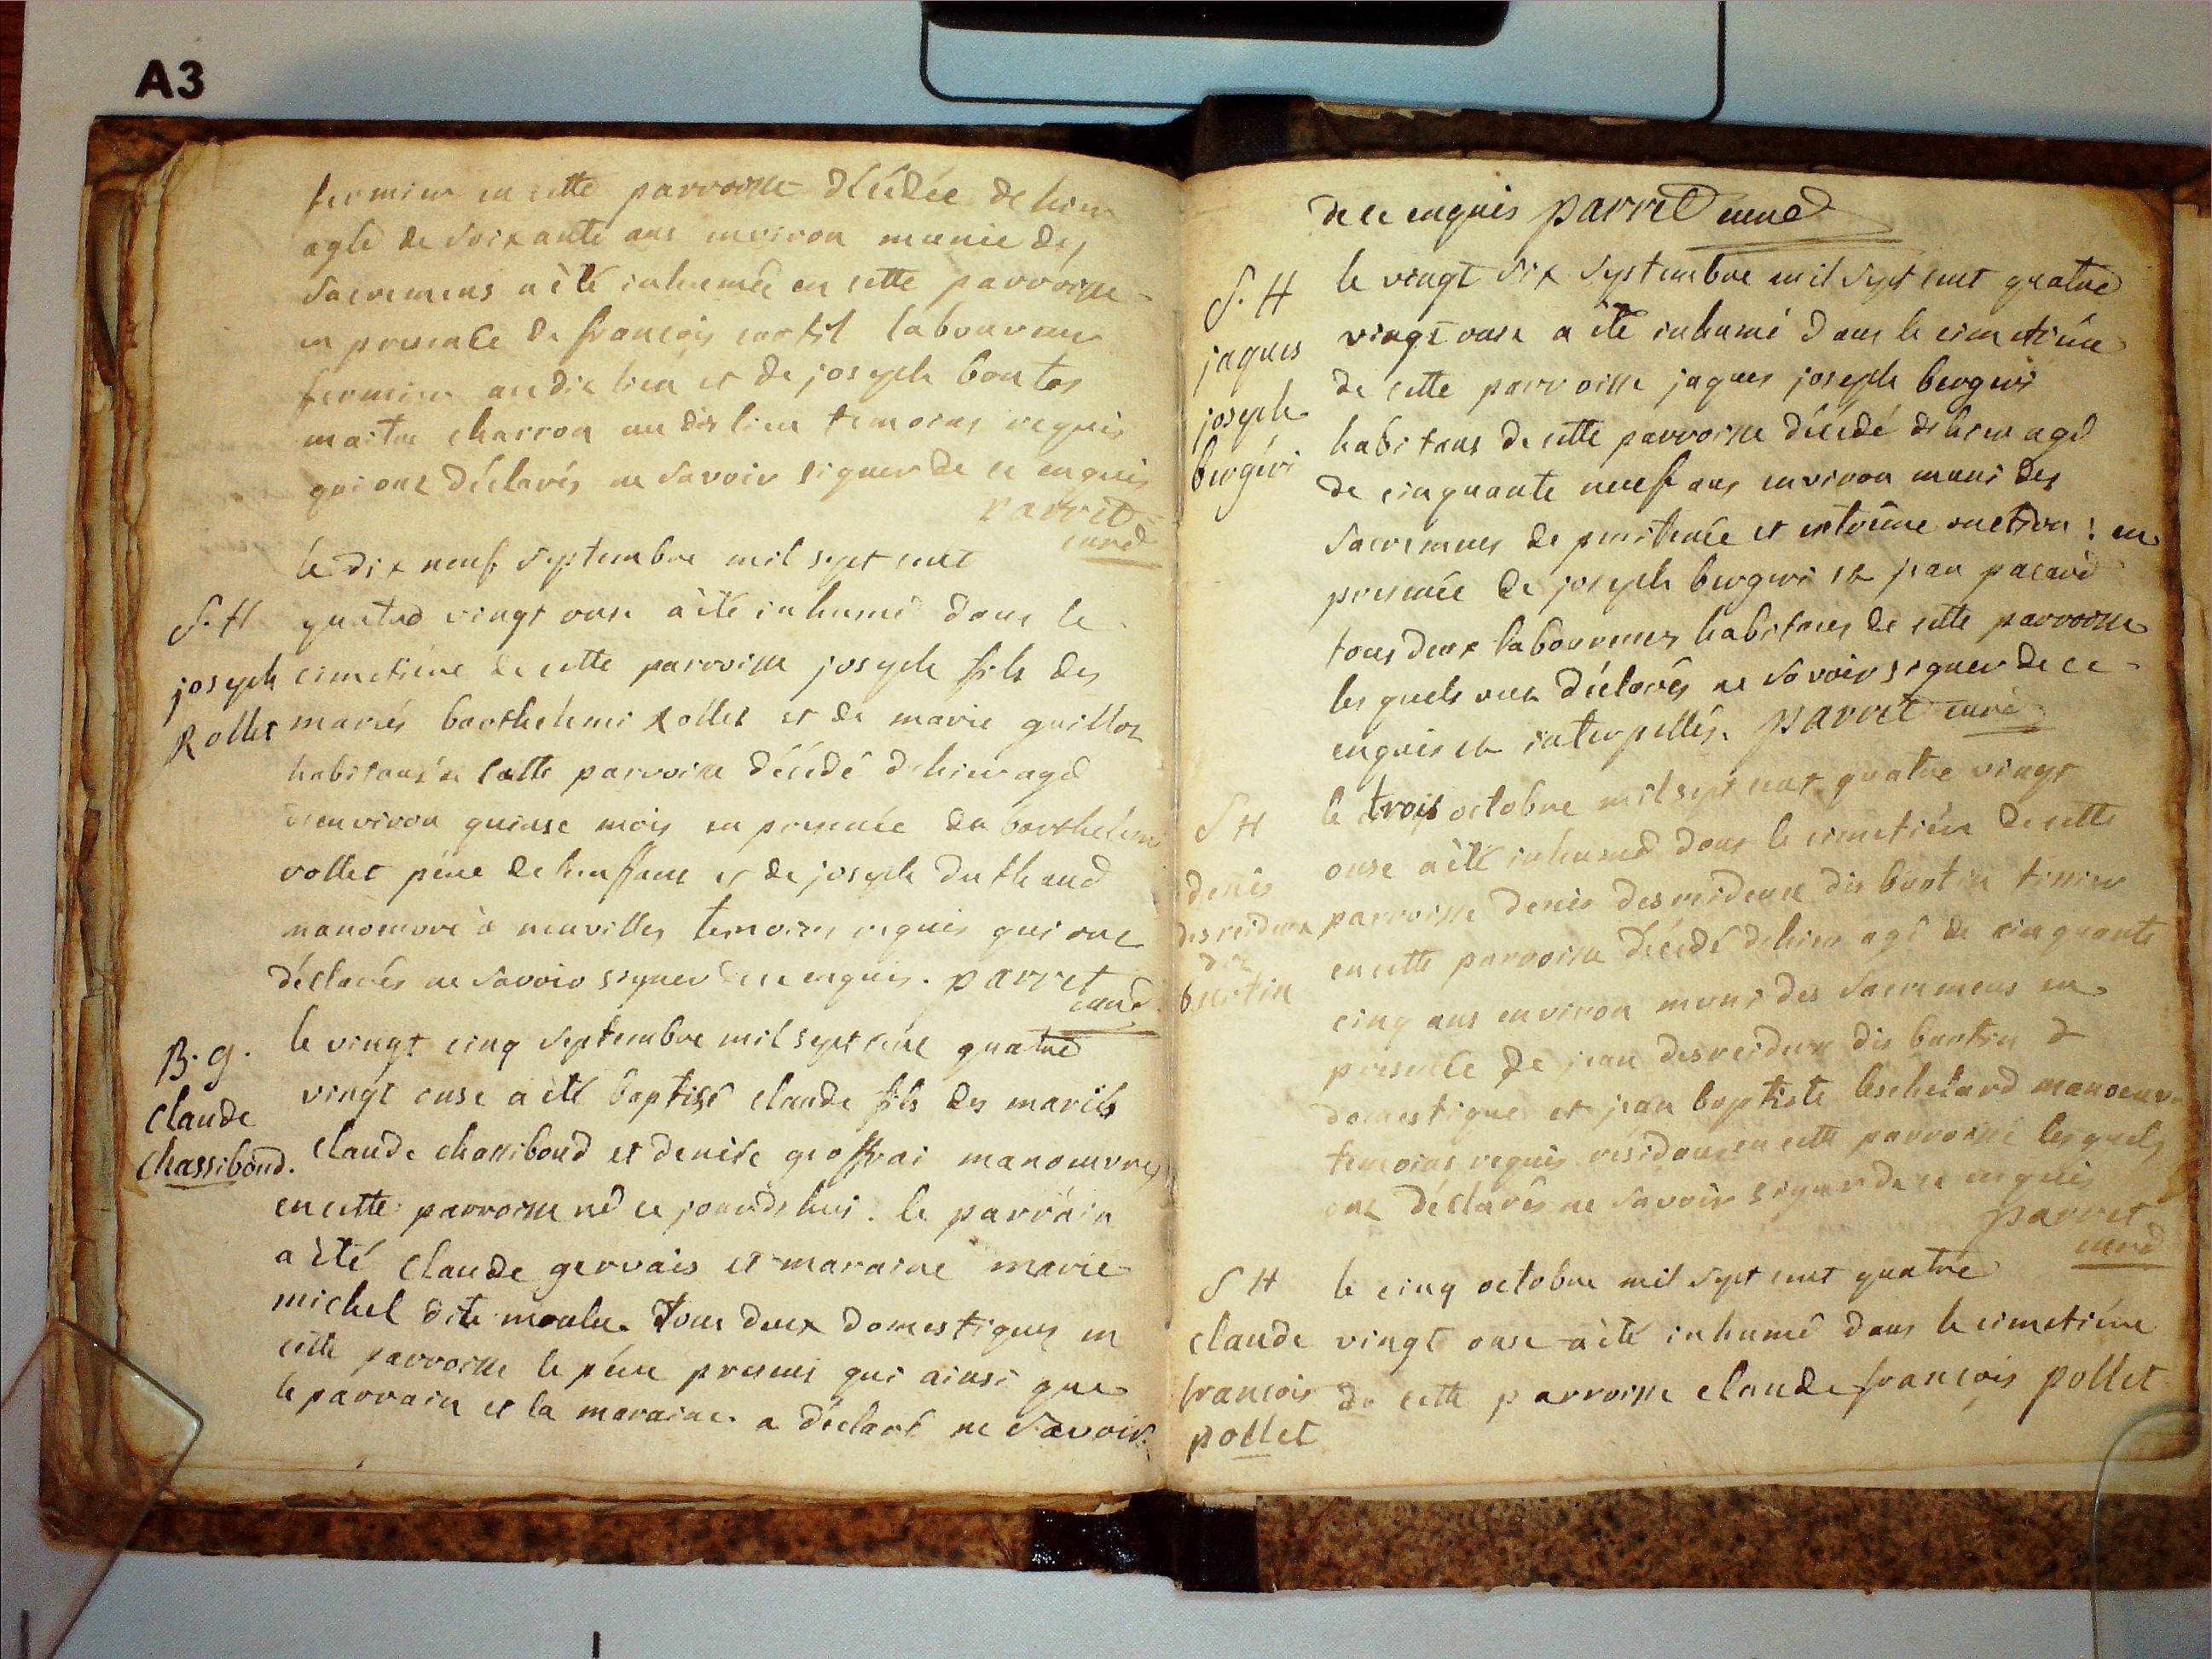 A3
fermier en cette parroisse décédée dehier
agée de soixante ans environ munie des
sacremens a été inhumée en cette parroisse
en presence de françois cortil laboureur
fermier audit lieu et de joseph bontos
maitre charron au dit lieu temoins requis
qui ont déclarés ne savoir signer de ce enquis
parret
curé
le dix neuf septembre mil sept cent
S. H quatre vingt onse a été inhumé dans le
joseph cimetière de cette parroisse joseph fils des
Rollet mariés barthelemi Rollet et de marie guillot
habitans de cette parroisse décédé dehier agé
d'environ quinse mois en presence de barthelemi
rollet père de l'enffant et de joseph duthaud
manoeuvre à neuvilles temoins requis qui ont
déclarés ne savoir signer de ce enquis. parret
curé
le vingt cinq septembre mil sept cent quatre
B. g. vingt onse a été baptisé claude fils des mariés
claude
chassiboud. claude chassiboud et denise geoffrai manoeuvres
en cette parroisse né ce jourdhui. le parrain
a été claude gervais et maraine marie
michel dite moulu tous deux domestiques en
cette parroisse le père presens qui ainsi que
le parrain et la maraine a déclaré ne savoir
de ce enquis parret curé
S. H le vingt six septembre mil sept cent quatre
jaques vingt onse a été inhumé dans le cimetière
joseph de cette parroisse jaques joseph bergeri
bergéri habitans de cette parroisse décédé dehier agé
de cinquante neuf ans environ muni des
sacremens de penitence et extrème onction : en
presence de joseph bergeri et jean pacard
tous deux laboureurs habitans de cette parroisse
les quels ont déclarés ne savoir signer de ce
enquis et interpellés. parret curé
S H le trois octobre mil sept cent quatre vingt
onse a été inhumé dans le cimetière de cette
denis parroisse denis desvideux dit bertin tissier
desvideux en cette parroisse décédé dehier agé de cinquante
dit
bertin cinq ans environ muni des sacremens en
presence de jean desvideux dit bertin
domestique et jean baptiste leschelard manoeuvre
temoins requis residans en cette parroisse lesquels
ont déclarés ne savoir signer de ce enquis
parret
curé
S H le cinq octobre mil sept cent quatre
claude vingt onse a été inhumé dans le cimetière
francois de cette parroisse claude françois pollet
pollet